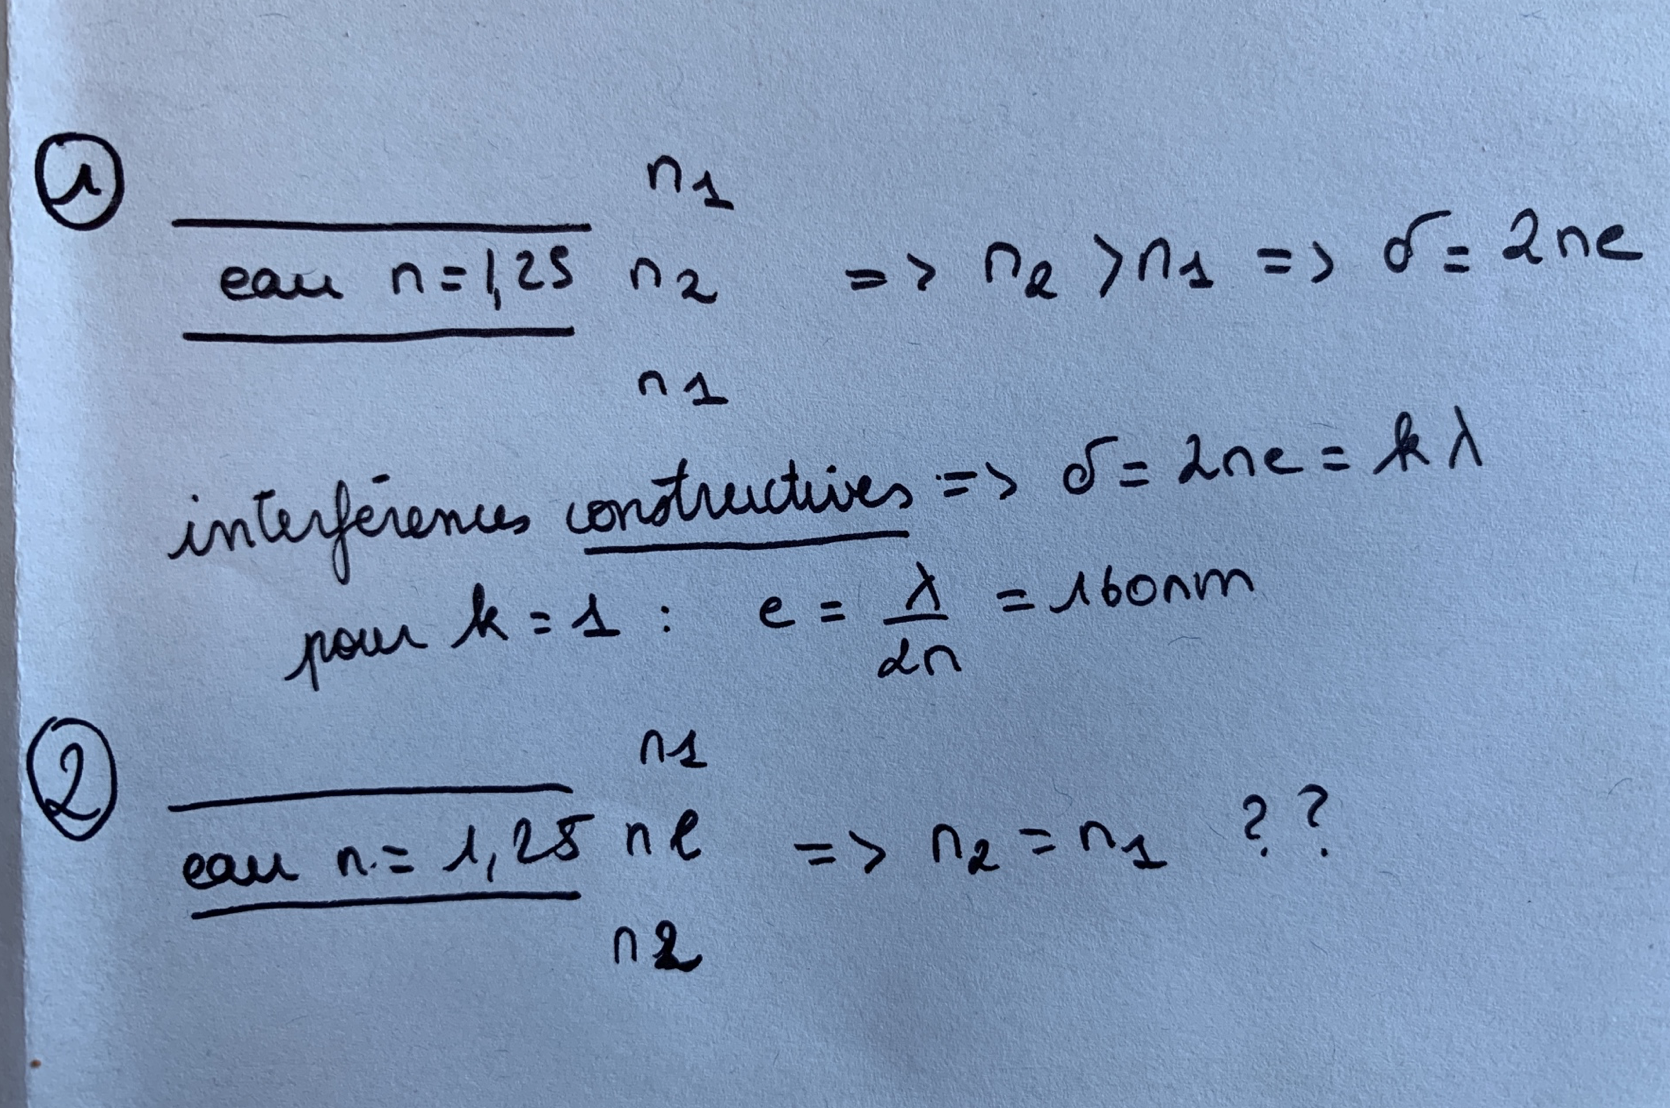 ① n1
eau n=1,25 n2 => n2 >n1 => δ = 2ne
n1
interférences constructives => δ = 2ne = kλ
pour k = 1 : e = λ/2n = 160nm
② n1
eau n = 1,25 nl => n2 = n1 ??
n2